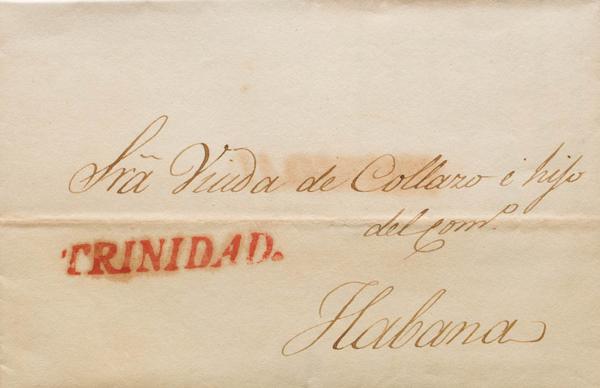 Srã Viuda de Collazo é hijo
del com.º
TRINIDAD.
Habana